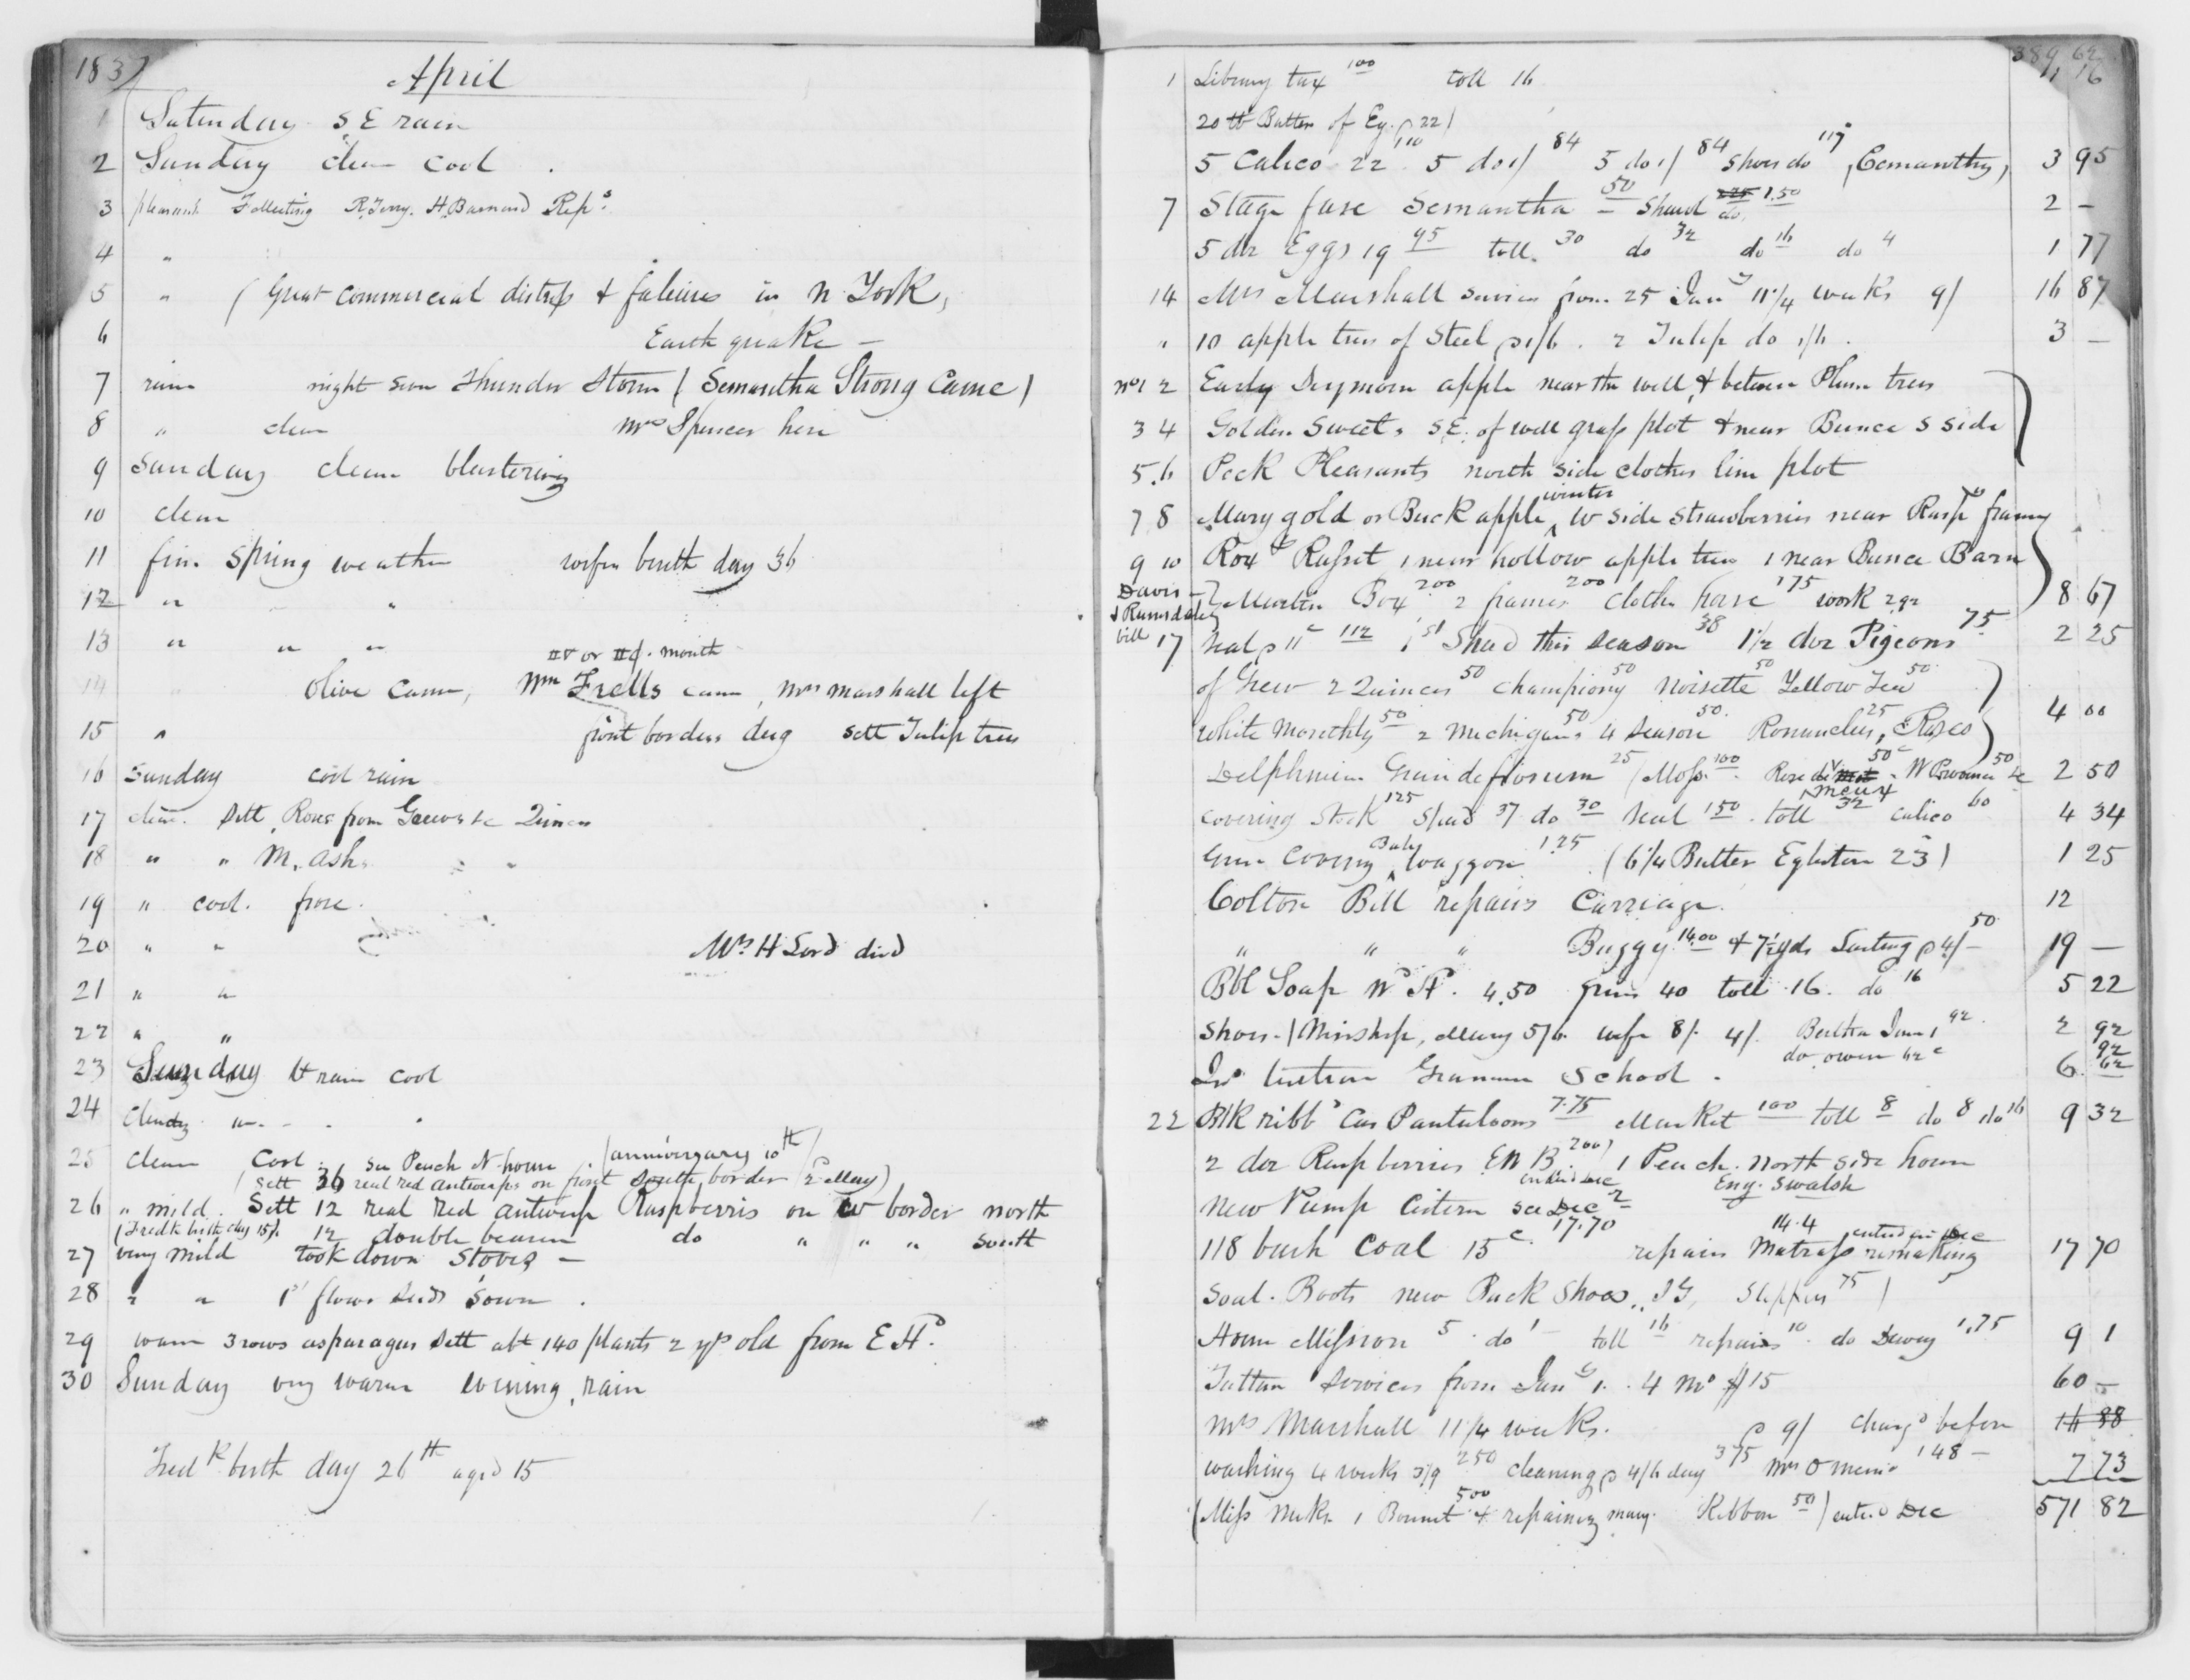 1837 April
1 Saturday S.E rain
2 Sunday clear cool
3 pleasant R. Terry. H. Barnard Reps
4 "
5 " (Great commercial distress & failures in N. York,
6 Earth quake —
7 rain night Thunder Storm ( Semantha Strong came )
8 " clear Mrs Spencer here
9 Sunday clear blustering
10 clear
11 fine Spring weather wifes birth day 36
12 " "
13 " " "
or month
14 Olive came, Wm came, Mrs Marshall left
15 " front borders dug sett Tulip trees
16 Sunday cool rain
17 clear. Sett Roses from &c Quinces
18 " " M. Ash.
19 " cool. froze.
20 " " Mrs H Lord died
21 " "
22 " "
23 Sunday lt rain cool
24 cloudy
25 clear cool. see Peach N. house (anniversary 10th)
( sett 36 real red antwerps on front south border / 2d May)
26 " mild. Sett 12 real red antwerp Raspberries on W border north
(Fredk birth day 15). 12 double bearing do " " " south
27 very mild took down stoves —
28 " " 1st flower seeds sown.
29 warm 3 rows asparagus sett abt 140 plants 2 yrs old from E Hd.
30 Sunday very warm evening, rain
Fredk birth day 26th aged 15
389 62
1 Library tax 100 toll 16 1 16
20 lb Butter of Eg. p 22)
5 Calico 22 110 5 do 1/ 84 5 do 1/ 84 shoes do 117 (Semantha) 3 95
7 Stage fare Semantha 50 Shawl do 1.50 2 —
5 doz Eggs 19 95 toll 30 do 32 do 16 do 4 1 77
14 Mrs Marshall services from 25 Jany 11 1/4 weeks 9/ 16 87
" 10 apple trees of Steel p 1/6. 2 Tulip do 1/6. 3 —
No 1 2 Early apple near the well, & between Plum trees
3 4 Golden Sweets S.E. of well grass plot & near Bunce S side
5.6 Peck Pleasants north side clothes line plot
7 8 Mary gold or Buck apple, winter W side strawberries near Raspy frames
9 10 Roxy Russet 1 near hollow apple tree 1 near Bunce Barn
Davis & Ramsdale bill Martin Box 200 2 frames 200 clothes horse 175 work 292 8 67
17 Veal p 11c 112 1st Shad this season 38 1 1/2 doz Pigeons 75 2 25
of Grew 2 Quinces 50 50 Noisette 50 Yellow Tea 50
White Monthly 50 2 Michigans 50 4 Season 50. 25, Roses 4 00
Delphinium Grandeflorum 25 (Moss 100 Rose de meux 50c W Provence 50 &c 2 50
covering Stock 125 Shad 37 do 30 Veal 150 toll 32 calico 60 4 34
Green covering Baby waggon 1.25 (6 1/4 Butter Egleston 23) 1 25
Colton Bill repairs Carriage. 12
" " " Buggy 14.00 & 7 1/2 yds p 4/- 50 19 —
Bbl Soap W P. 4.50 40 toll 16. do 16 5 22
Shoes. (Winship, Mary 5/6. wife 8/. 4/. 92 2 92
Jno tuition Grammar School. do owen 62c 6 62
22 Blk ribbd Cas Pantaloons 7.75 Market 100 toll 8 do 8 do 16 9 32
2 doz Raspberries E N B. 200) 1 Peach. north side house
New Pump Cistern see Dec
118 bush Coal 15c. 17.70 repairs Matrass remaking 14.4 entered in Dec 17 70
Soal. Boots new Buck Shoes, Slippers 75 )
Home Mission 5. do 1 — toll 16 repairs 10 do Dewey 1.75 9 1
services from Jany 1. 4 Mo $15 60 —
Mrs Marshall 11 1/4 weeks. p 9/ chargd before 16 88
washing 4 weeks 3/9 250 cleaning p 4/6 day 375 Mrs 148 — 7 73
(Miss 1 Bonnet 500 & repairing Mary. Ribbon 50) entd Dec 571 82